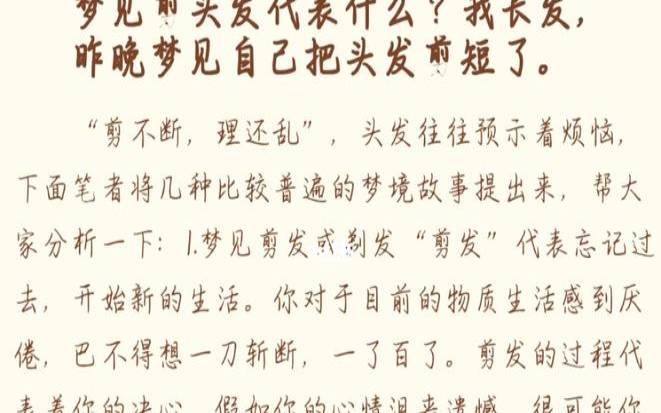 梦见剪头发代表什么？我长发，
昨晚梦见自己把头发剪短了。
“剪不断，理还乱”，头发往往预示着烦恼，
下面笔者将几种比较普遍的梦境故事提出来，帮大
家分析一下：1.梦见剪发或剃发“剪发”代表忘记过
去，开始新的生活。你对于目前的物质生活感到厌
倦，巴不得想一刀斩断，一了百了。剪发的过程代
表着你的决心，假如你的心情沮丧遗憾，很可能你